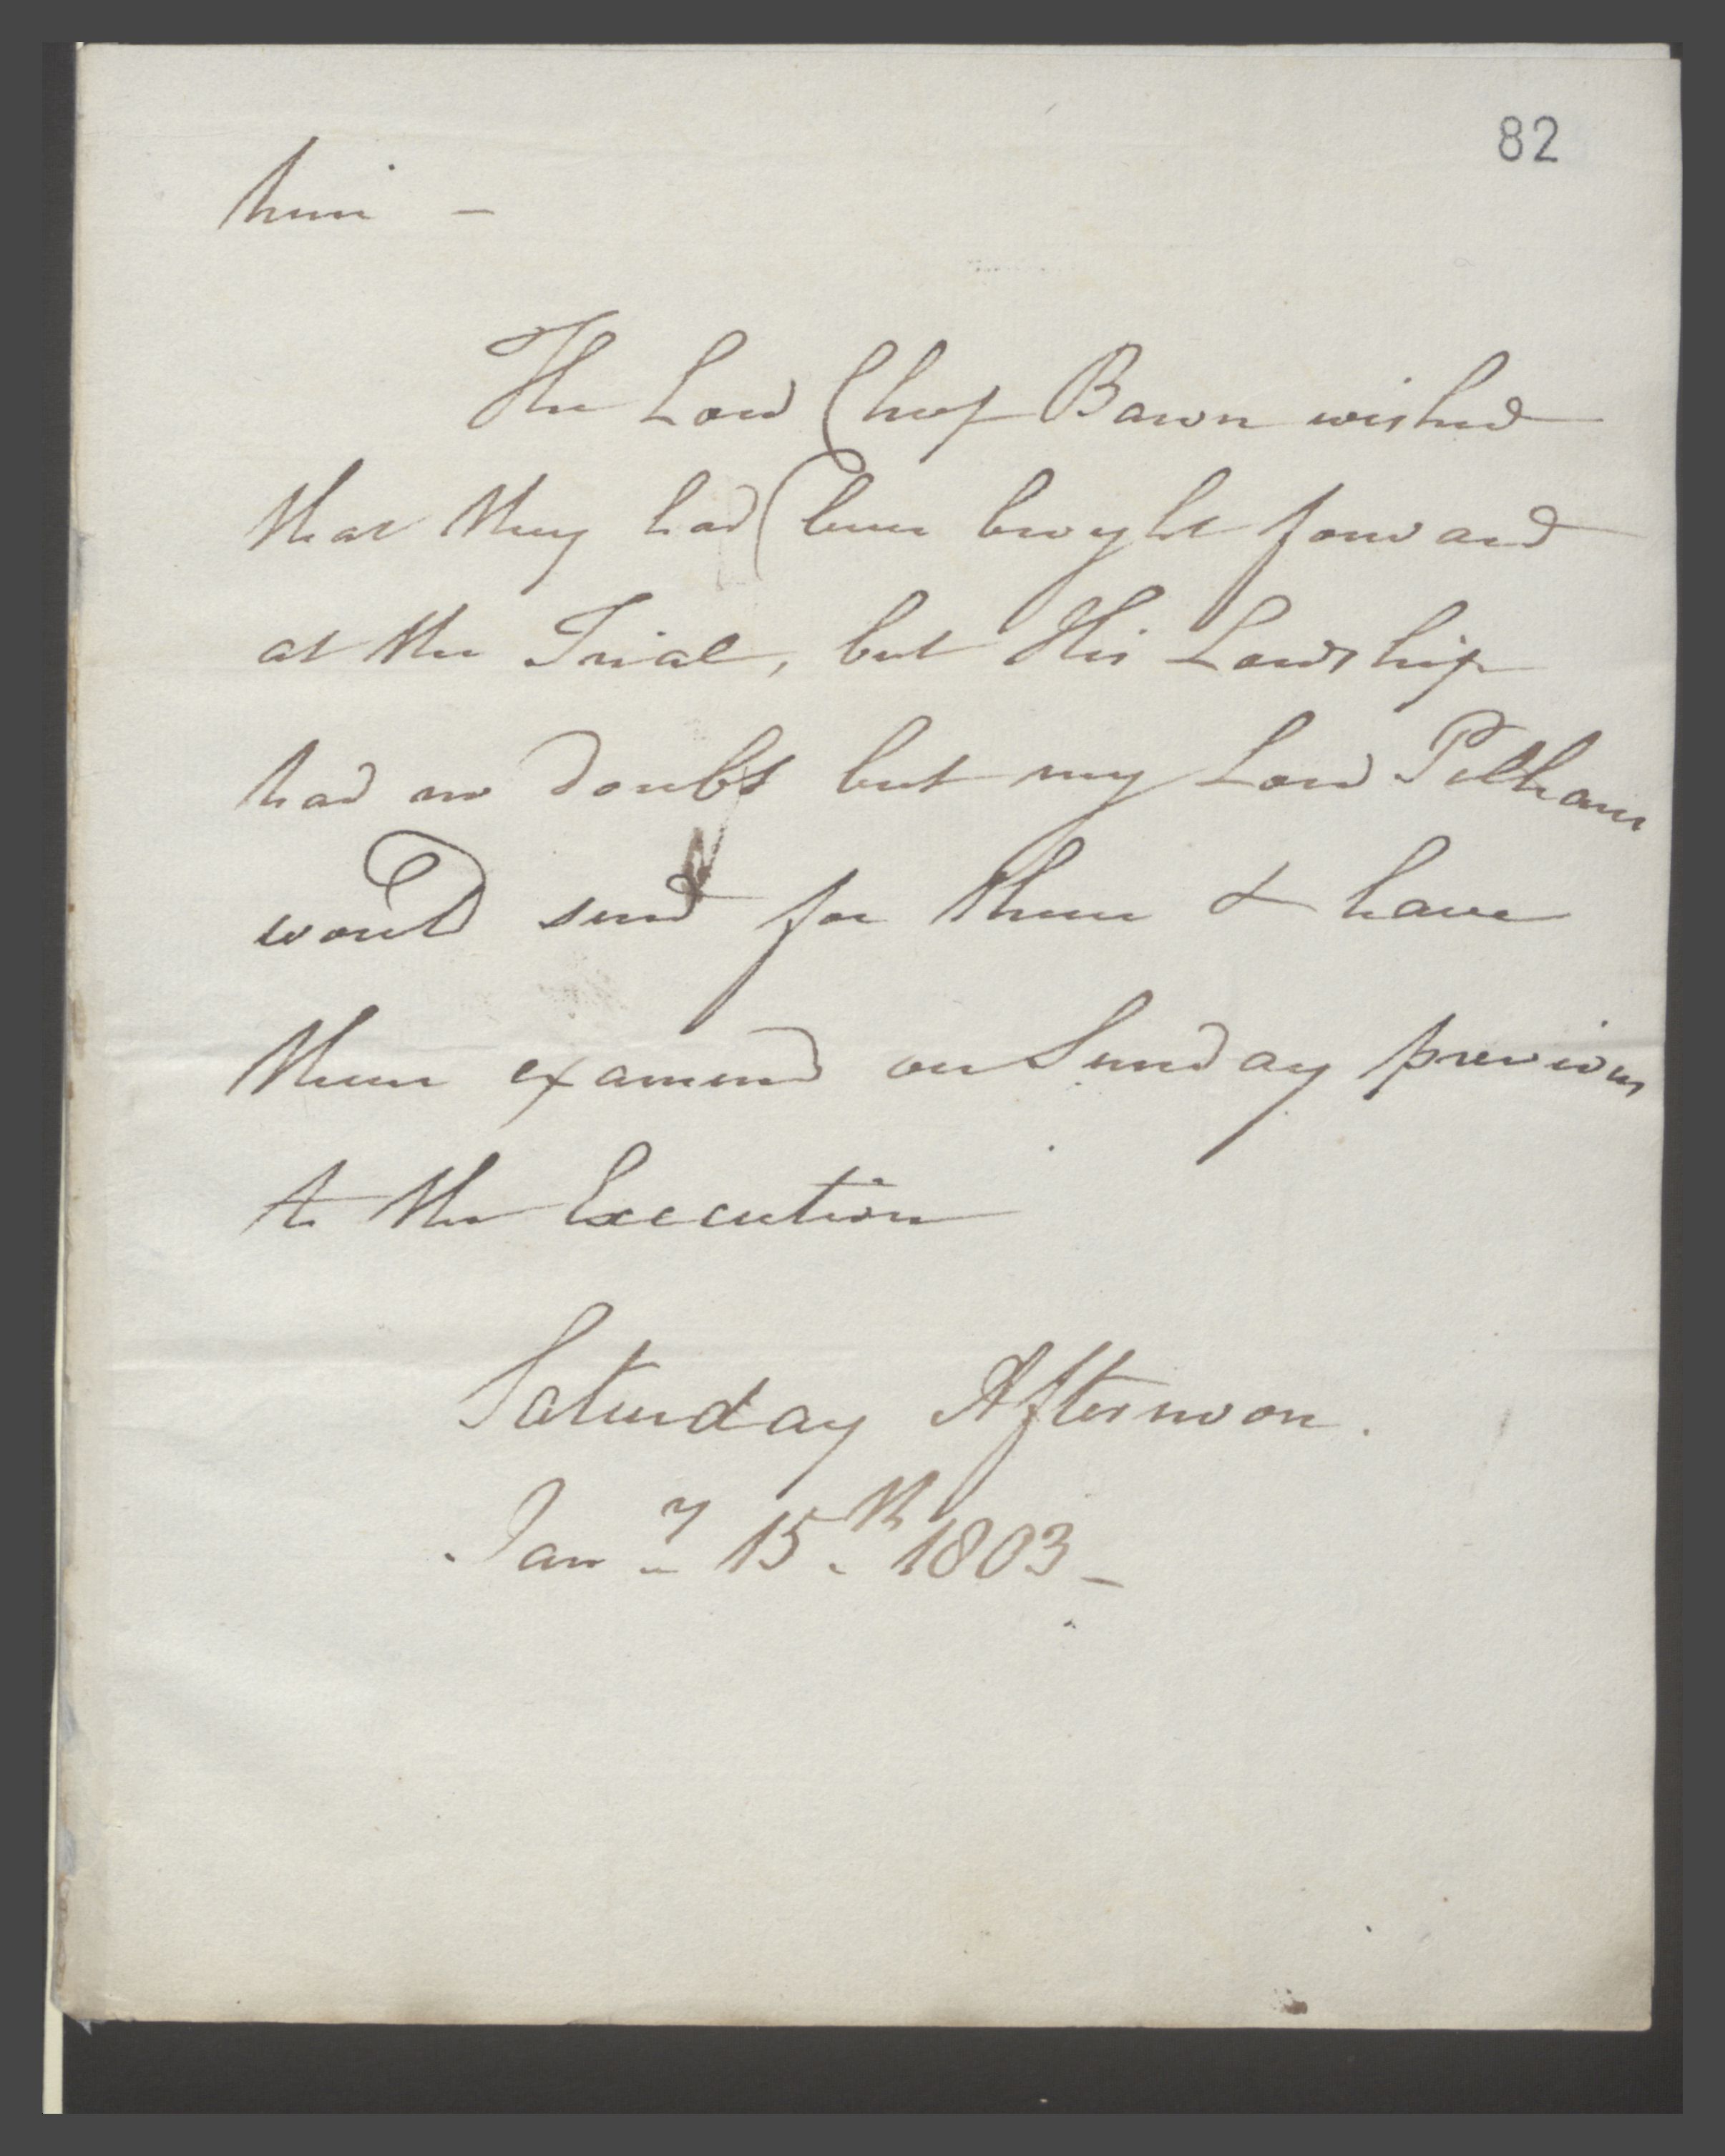 82
him –
The Lord Chief Baron wished
that they had been brought forward
at the Trial, but His Lordship
had no doubt but my Lord Pelham
would send for them & have
them examend on Sunday previous
to the Execution
Saturday Afternoon.
Jany 15th 1803 –